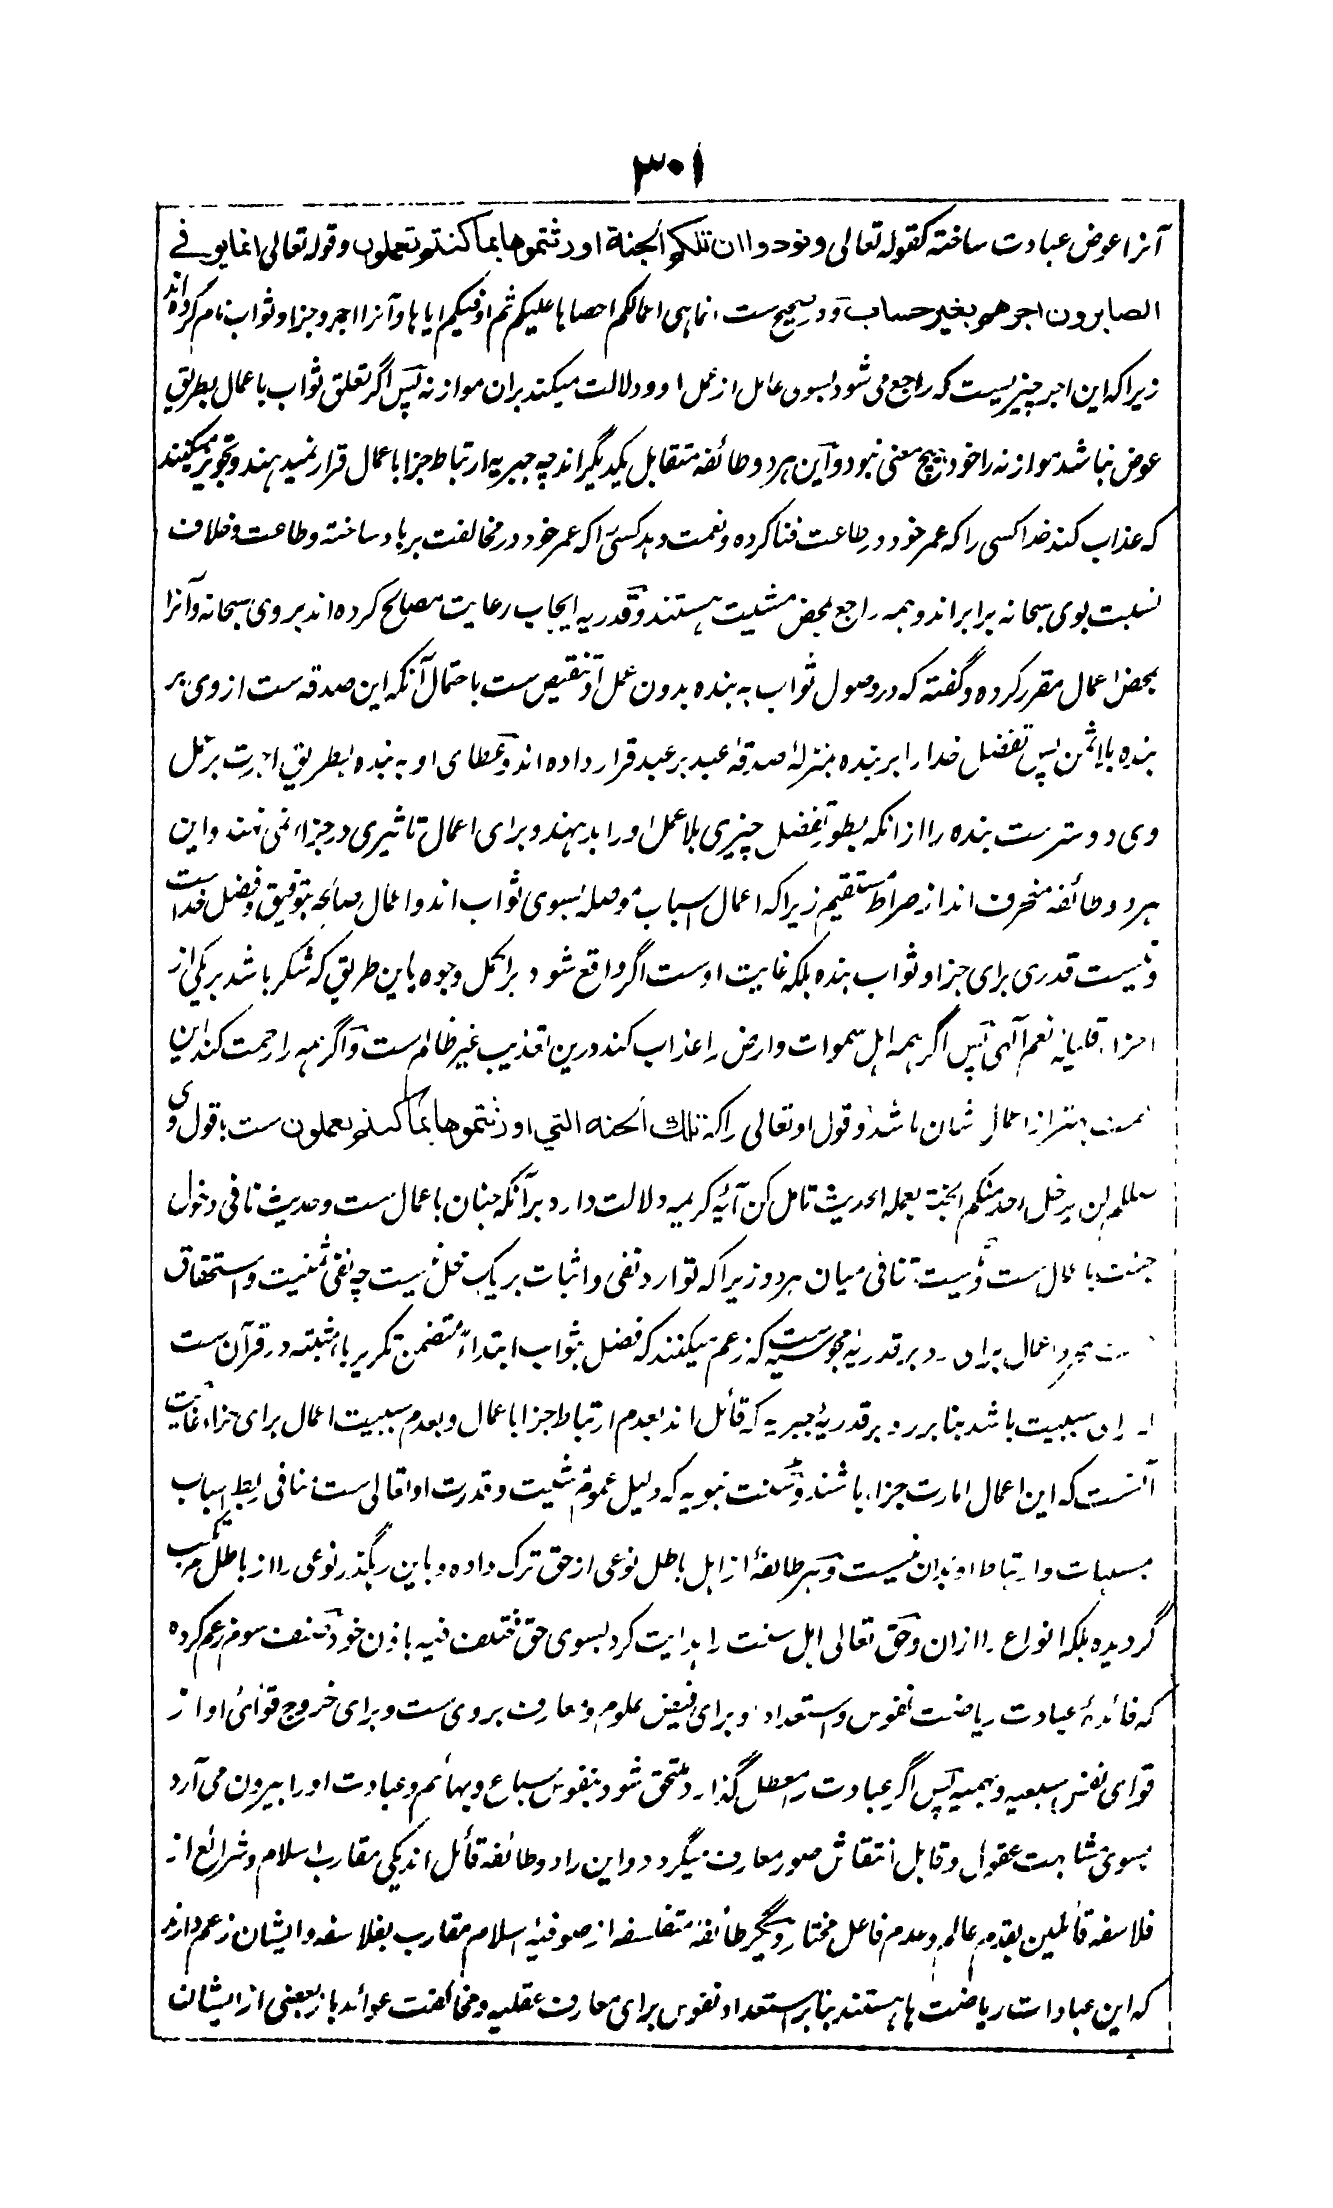 ۳۰۱
آنرا عوض عبادت ساخته کقوله تعالی و نودوا ان تلکم الجنة اورثتموها بما کنتم تعملون وقوله تعالی انما یوفی
الصابرون اجرهم بغیر حساب و در صحیح ست انما هی اعمالکم احصاها علیکم ثم اوفیکم ایاها و آنرا اجر و جزا و ثواب نام کرده اند
زیرا که این اجر چیزیست که راجع می شود بسوی عامل از عمل او و دلالت میکند بران موازنه پس اگر تعلق ثواب باعمال بطریق
عوض نباشد موازنه را خود هیچ معنی نبود و این هر دو طائفه متقابل یکدیگر اند چه جبریه ارتباط جزا باعمال قرار نمیدهند و تجویز میکنند
که عذاب کند خدا کسی را که عمر خود در طاعت فنا کرده و نعمت دهد کسی را که عمر خود در مخالفت برباد ساخته و طاعت و خلاف
نسبت بوی سبحانه برابر اند و همه راجع بمحض مشیت هستند و قدریه ایجاب رعایت مصالح کرده اند بر وی سبحانه و آنرا
بمحض اعمال مقرر کرده و گفته که در وصول ثواب به بنده بدون عمل او تنقیص ست باحتمال آنکه این صدقه ست از وی بر
بنده بلا ثمن پس تفضل خدا را بر بنده بمنزلۀ صدقۀ عبد بر عبد قرار داده اند و عطای او به بنده بطریق اجرت بر عمل
وی دوست تر ست بنده را از انکه بطور تفضل چیزی بلا عمل او را بدهند و برای اعمال تاثیری در جزاء نمی نهند و این
هر دو طائفه منحرف اند از صراط مستقیم زیرا که اعمال اسباب موصله بسوی ثواب اند و اعمال صالحه بتوفیق و فضل خداست
و نیست قدری برای جزا و ثواب بنده بلکه غایت اوست اگر واقع شود بر اکمل وجوه باین طریق که شکر باشد بر یکی از
اجزاء قلیله نعم آلهی پس اگر همه اهل سموات و ارض را عذاب کند درین تعذیب غیر ظالم ست و اگر همه را رحمت کند این
رحمت بهتر از اعمال شان باشد و قول او تعالی را که تلک الجنة التي اورثتموها بما کنتم تعملون ست با قول وی
صللم لن یدخل احد منکم الجنة بعمله الحدیث تامل کن آیۀ کریمه دلالت دارد بر آنکه جنان باعمال ست و حدیث نافی دخول
جنت باعمال ست و نیست تنافی میان هر دو زیرا که توارد نفی و اثبات بر یک محل نیست چه نفی ثمنیت و استحقاق
مجرد اعمال برای رد بر قدریۀ مجوسیه ست که زعم میکنند که فضل بثواب ابتداءً متضمن تکریر باء مثبته در قرآن ست
برای سببیت باشد بنا بر رد بر قدریۀ جبریه که قائل اند بعدم ارتباط جزا باعمال و بعدم سببیت اعمال برای جزاء غایت
آنست که این اعمال امارت جزاء باشند و سنت نبویه که دلیل عموم مشیت و قدرت او تعالی ست منافی ربط اسباب
بمسببات و ارتباط او بدان نیست و هر طائفۀ از اهل باطل نوعی از حق ترک داده و باین رهگذر نوعی را از باطل مرتکب
گردیده بلکه انواع را ازان و حق تعالی اهل سنت را هدایت کرد بسوی حق مختلف فیه باذن خود صنف سوم زعم کرده
که فائدۀ عبادت ریاضت نفوس و استعداد او برای فیض علوم و معارف بر وی ست و برای خروج قوای او از
قوای نفس سبعیه و بهیمیه پس اگر عبادت را معطل گذارد ملتحق شود بنفوس سباع و بهائم و عبادت او را بیرون می آرد
بسوی مشابهت عقول و قابل انتقاش صور معارف میگردد و این را دو طائفه قائل اند یکی مقارب اسلام و شرائع از
فلاسفه قائلین بقدم عالم و عدم فاعل مختار و دیگر طائفۀ متفلسفه از صوفیۀ اسلام مقارب بفلاسفه و ایشان زعم دارند
که این عبادات ریاضت ها هستند بنا بر استعداد نفوس برای معارف عقلیه و مخالفت عوائد باز بعضی از ایشان